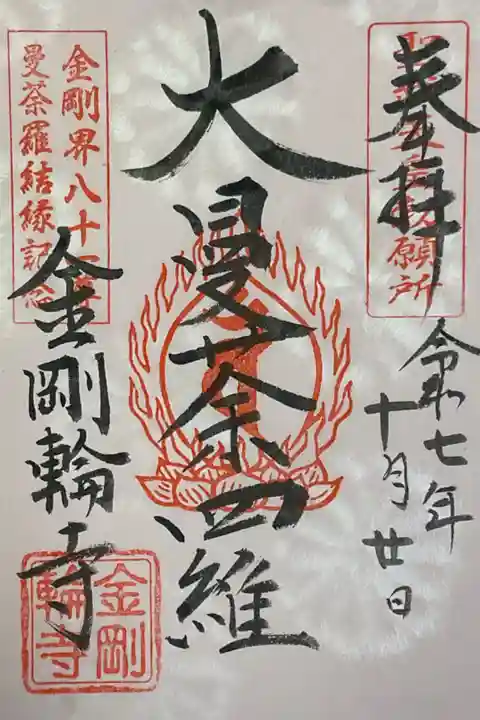 奉拝
令和七年
十月廿日
大曼荼羅
金剛界八十一尊
曼荼羅結縁記念
金剛輪寺
金剛
輪寺